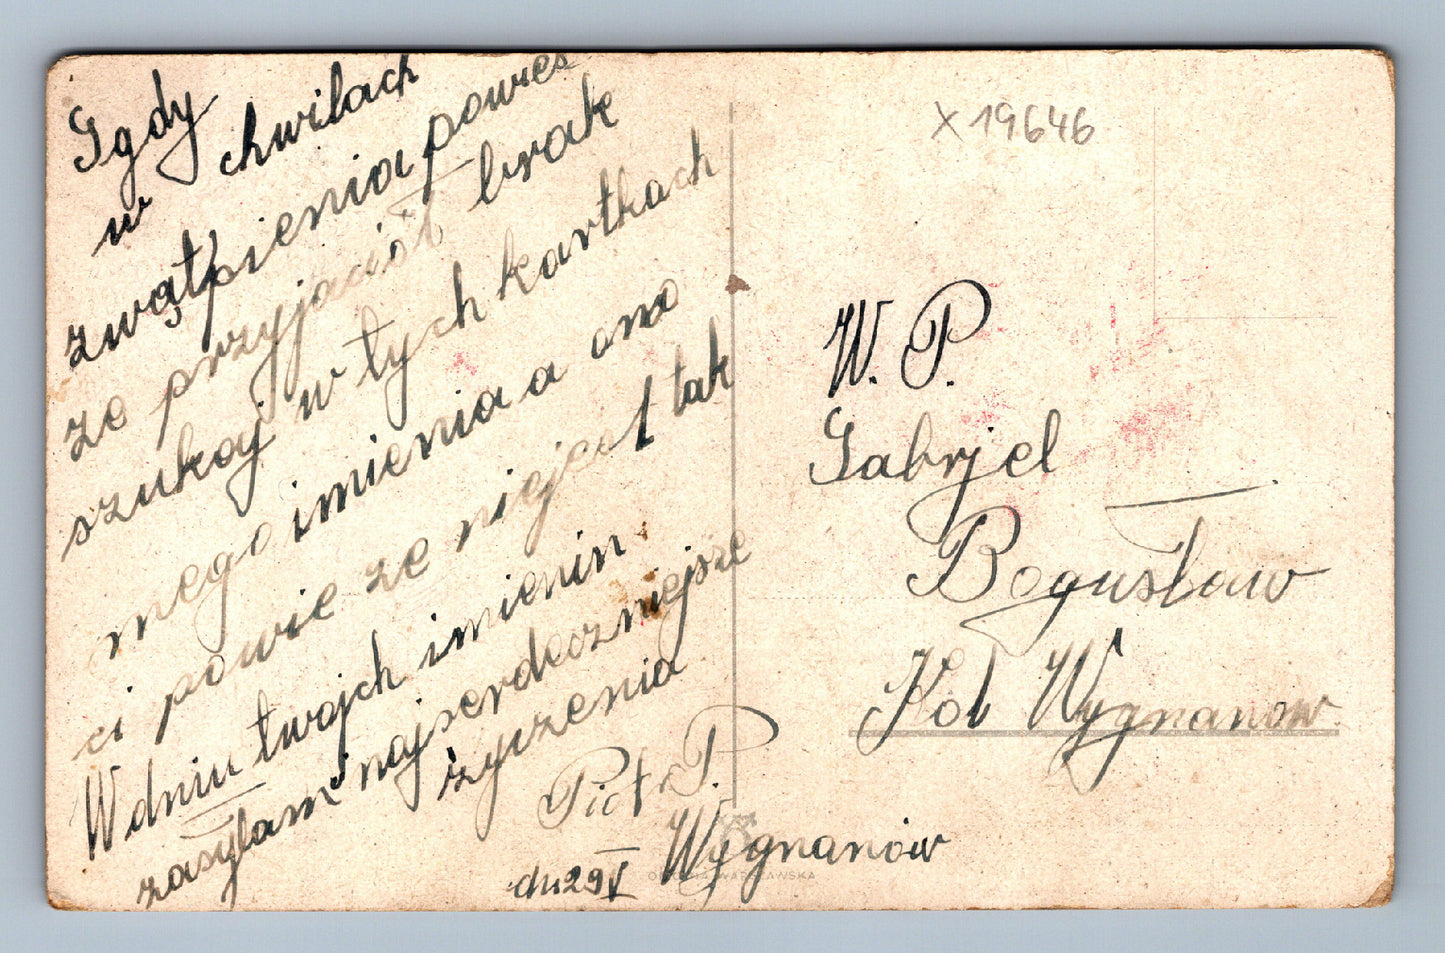 Igdy
w chwilach
zwątpienia powies
ze przyjaciół brak
szukaj w tych kartkach
mego imienia a ono
ci powie ze niejest tak
W dniu twojch imienin
zasyłam najserdeczniejsze
życzenia
Piotr P.
dn 29 V Wygnanów
X 19646
W. P.
Gabrjel
Bogusław
Kol Wygnanow
WARSZAWSKA